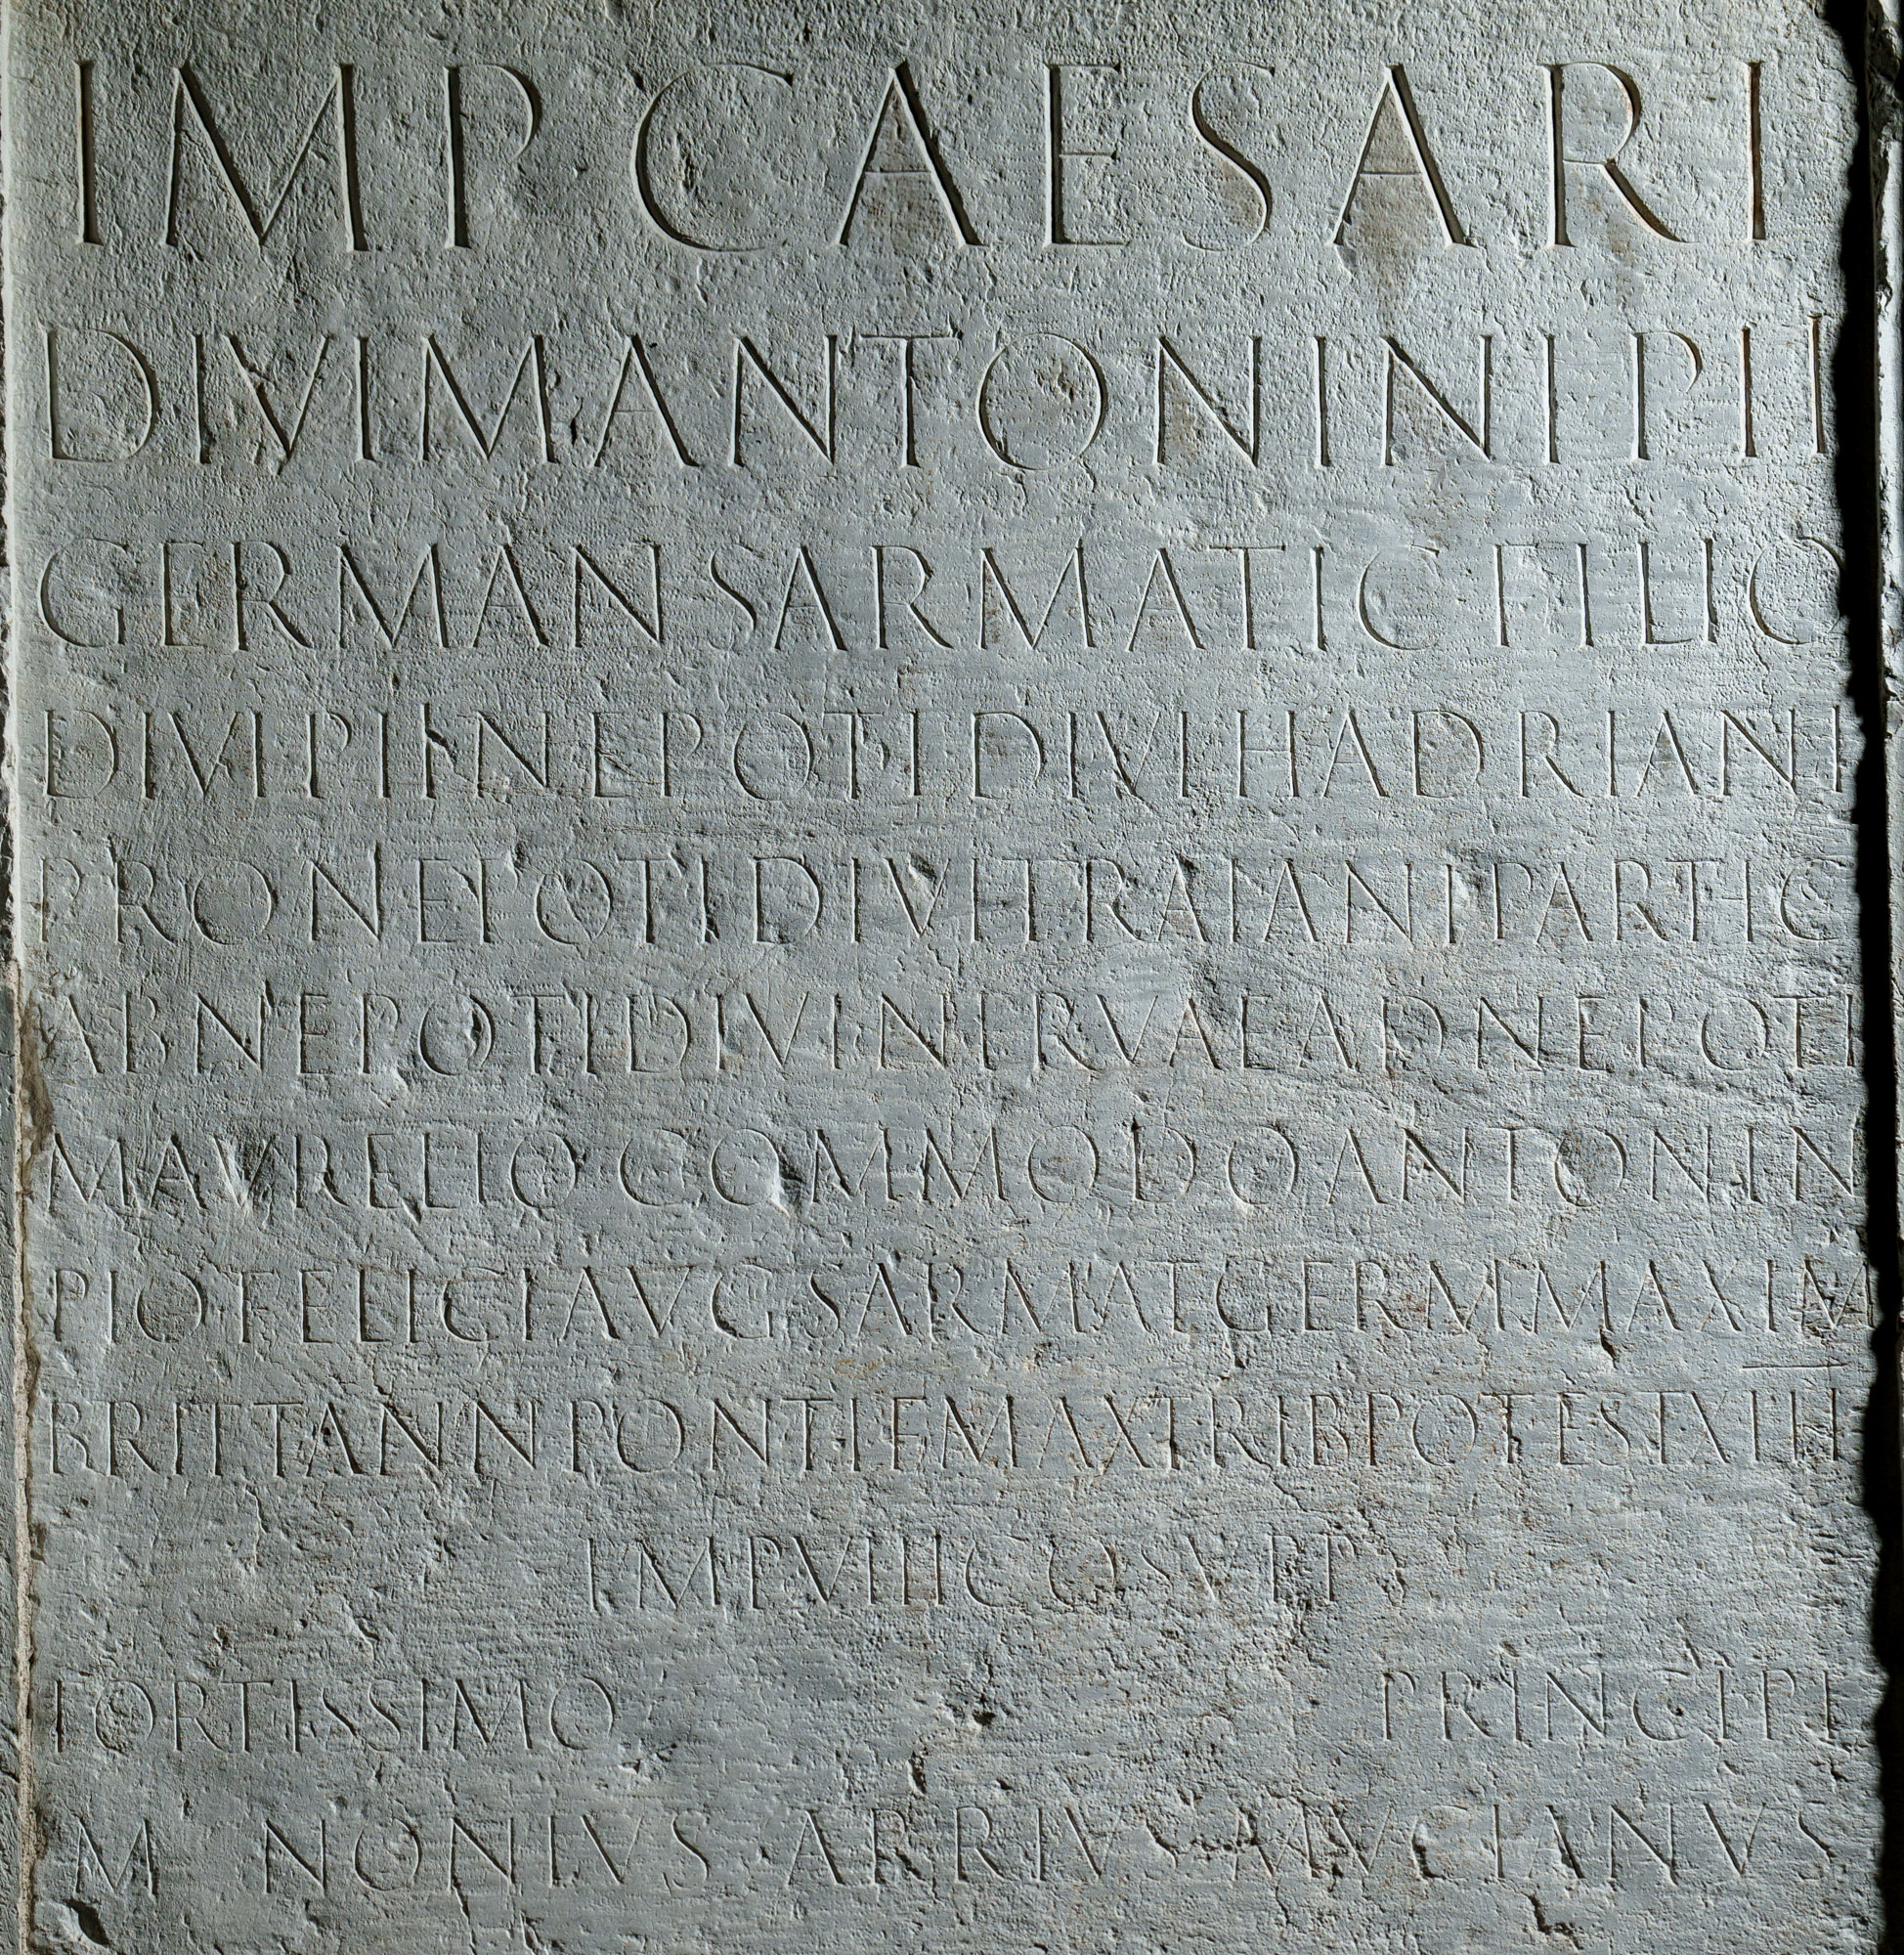 IMP CAESARI
DIVI M ANTONINI PII
GERMAN SARMATIC FILIO
DIVI PII NEPOTI DIVI HADRIANI
PRONEPOTI DIVI TRAIANI PARTHIC
ABNEPOTI DIVI NERVAE ADNEPOTI
M AVRELIO COMMODO ANTONIN
PIO FELICI AVG SARMAT GERM MAXIM
BRITTANN PONTIF MAX TRIB POTEST XIIII
IMP VIII COS V P P
FORTISSIMO PRINCIPI
M NONIVS ARRIVS MVCIANVS